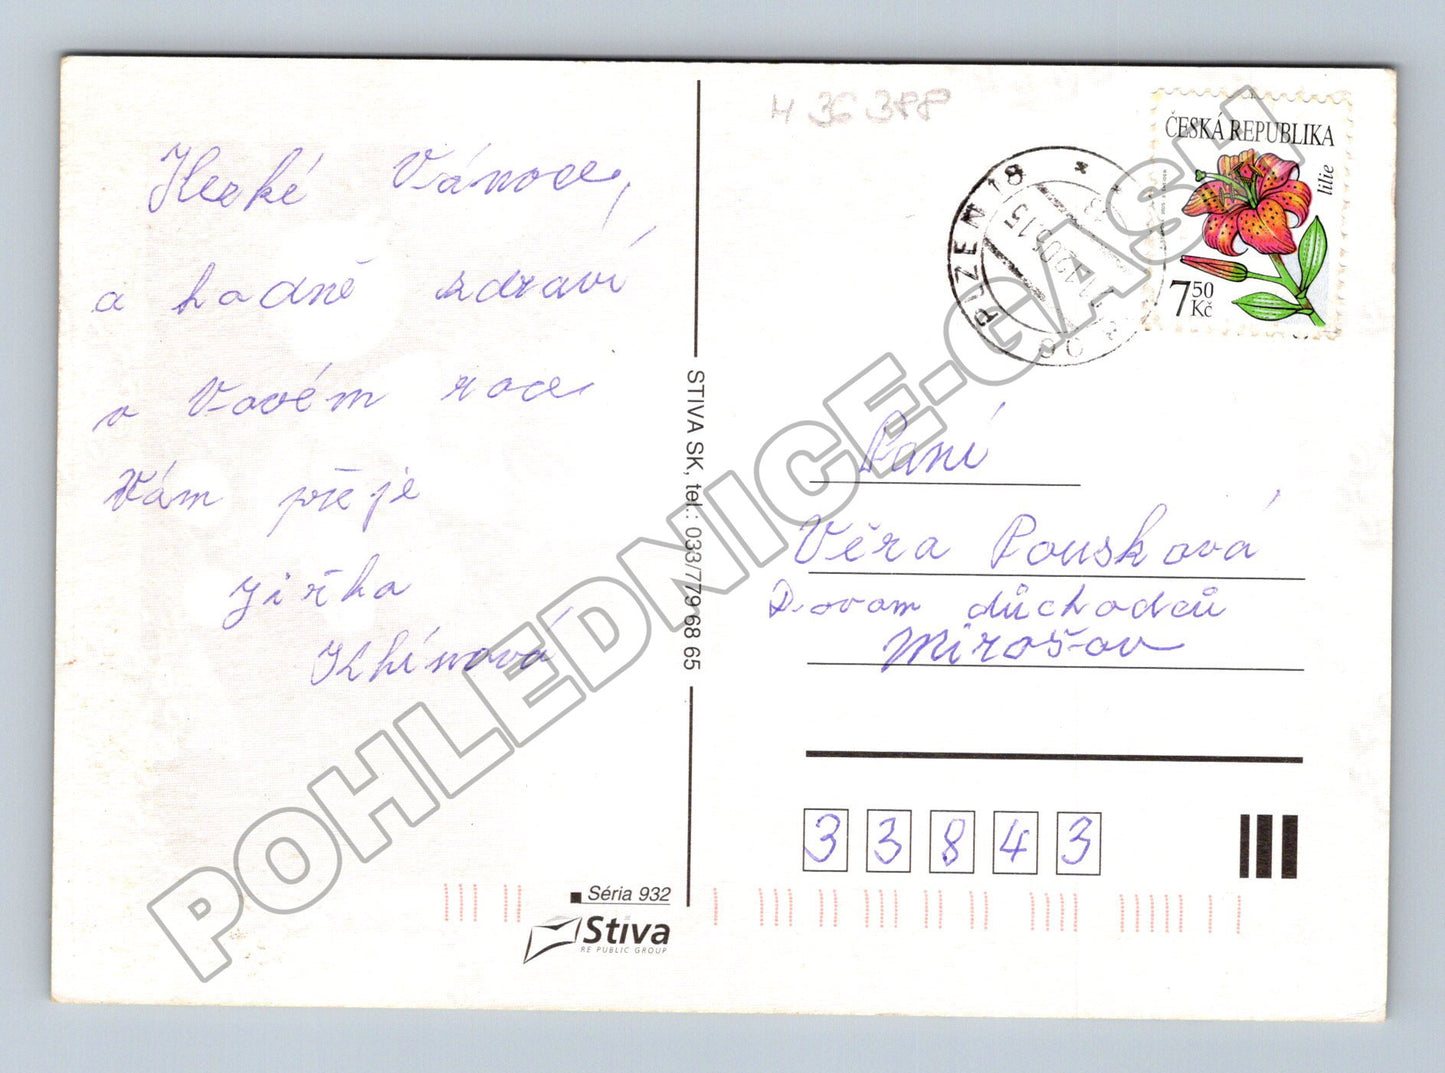 Hezké Vánoce,
a hodně zdraví
v Novém roce
Vám přeje
Jiřka
Khínová
H 36 388
ČESKÁ REPUBLIKA
lilie
7 50 Kč
PLZEŇ 18
Paní
Věra Pousková
Domov důchodců
Mirošov
33843
STIVA SK, tel.: 033/779 68 65
Séria 932
Stiva
RE PUBLIC GROUP
POHLEDNICE-GASLI